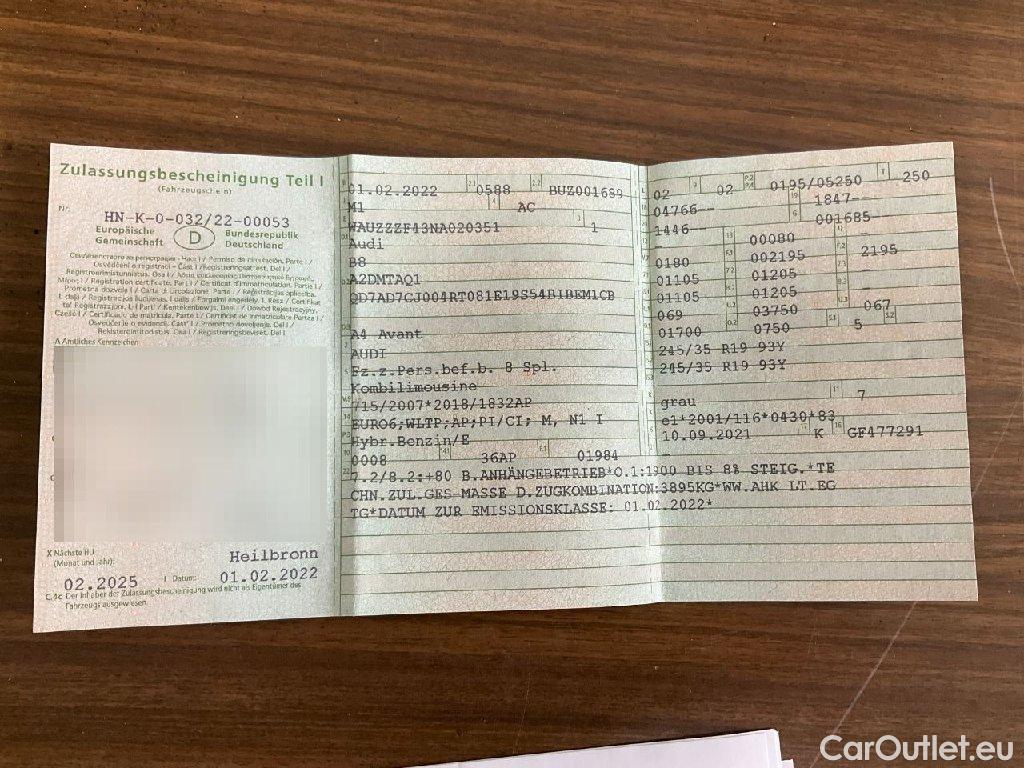 Zulassungsbescheinigung Teil I
(Fahrzeugschein)
Nr.
HN-K-0-032/22-00053
Europäische
Gemeinschaft
D
Bundesrepublik
Deutschland
A Amtliches Kennzeichen
X Nächste HU
(Monat und Jahr)
Heilbronn
02.2025
I Datum:
01.02.2022
C.4c Der Inhaber der Zulassungsbescheinigung wird nicht als Eigentümer des
Fahrzeugs ausgewiesen.
01.02.2022 0588 BUZ001689
M1 AC
WAUZZZF43NA020351 1
Audi
B8
A2DMTAQ1
QD7AD7CJ004RT081E19S54B1BEM1CB
A4 Avant
AUDI
Fz.z.Pers.bef.b. 8 Spl.
Kombilimousine
715/2007*2018/1832AP
EURO6;WLTP;AP;PI/CI; M, N1 I
Hybr.Benzin/E
0008 36AP 01984
7.2/8.2:+80 B.ANHÄNGEBETRIEB*O.1:1900 BIS 8% STEIG.*TE
CHN.ZUL.GES MASSE D.ZUGKOMBINATION:3895KG*WW.AHK LT.EG
TG*DATUM ZUR EMISSIONSKLASSE: 01.02.2022*
02 02 0195/05250 250
04766-- 1847--
1446-- 001685-
- 00080 -
0180 002195 2195
01105 01205 -
01105 01205 -
069 03750 067
01700 0750 5 -
245/35 R19 93Y
245/35 R19 93Y
-
grau 7
e1*2001/116*0430*83
10.09.2021 K GF477291
-
CarOutlet.eu